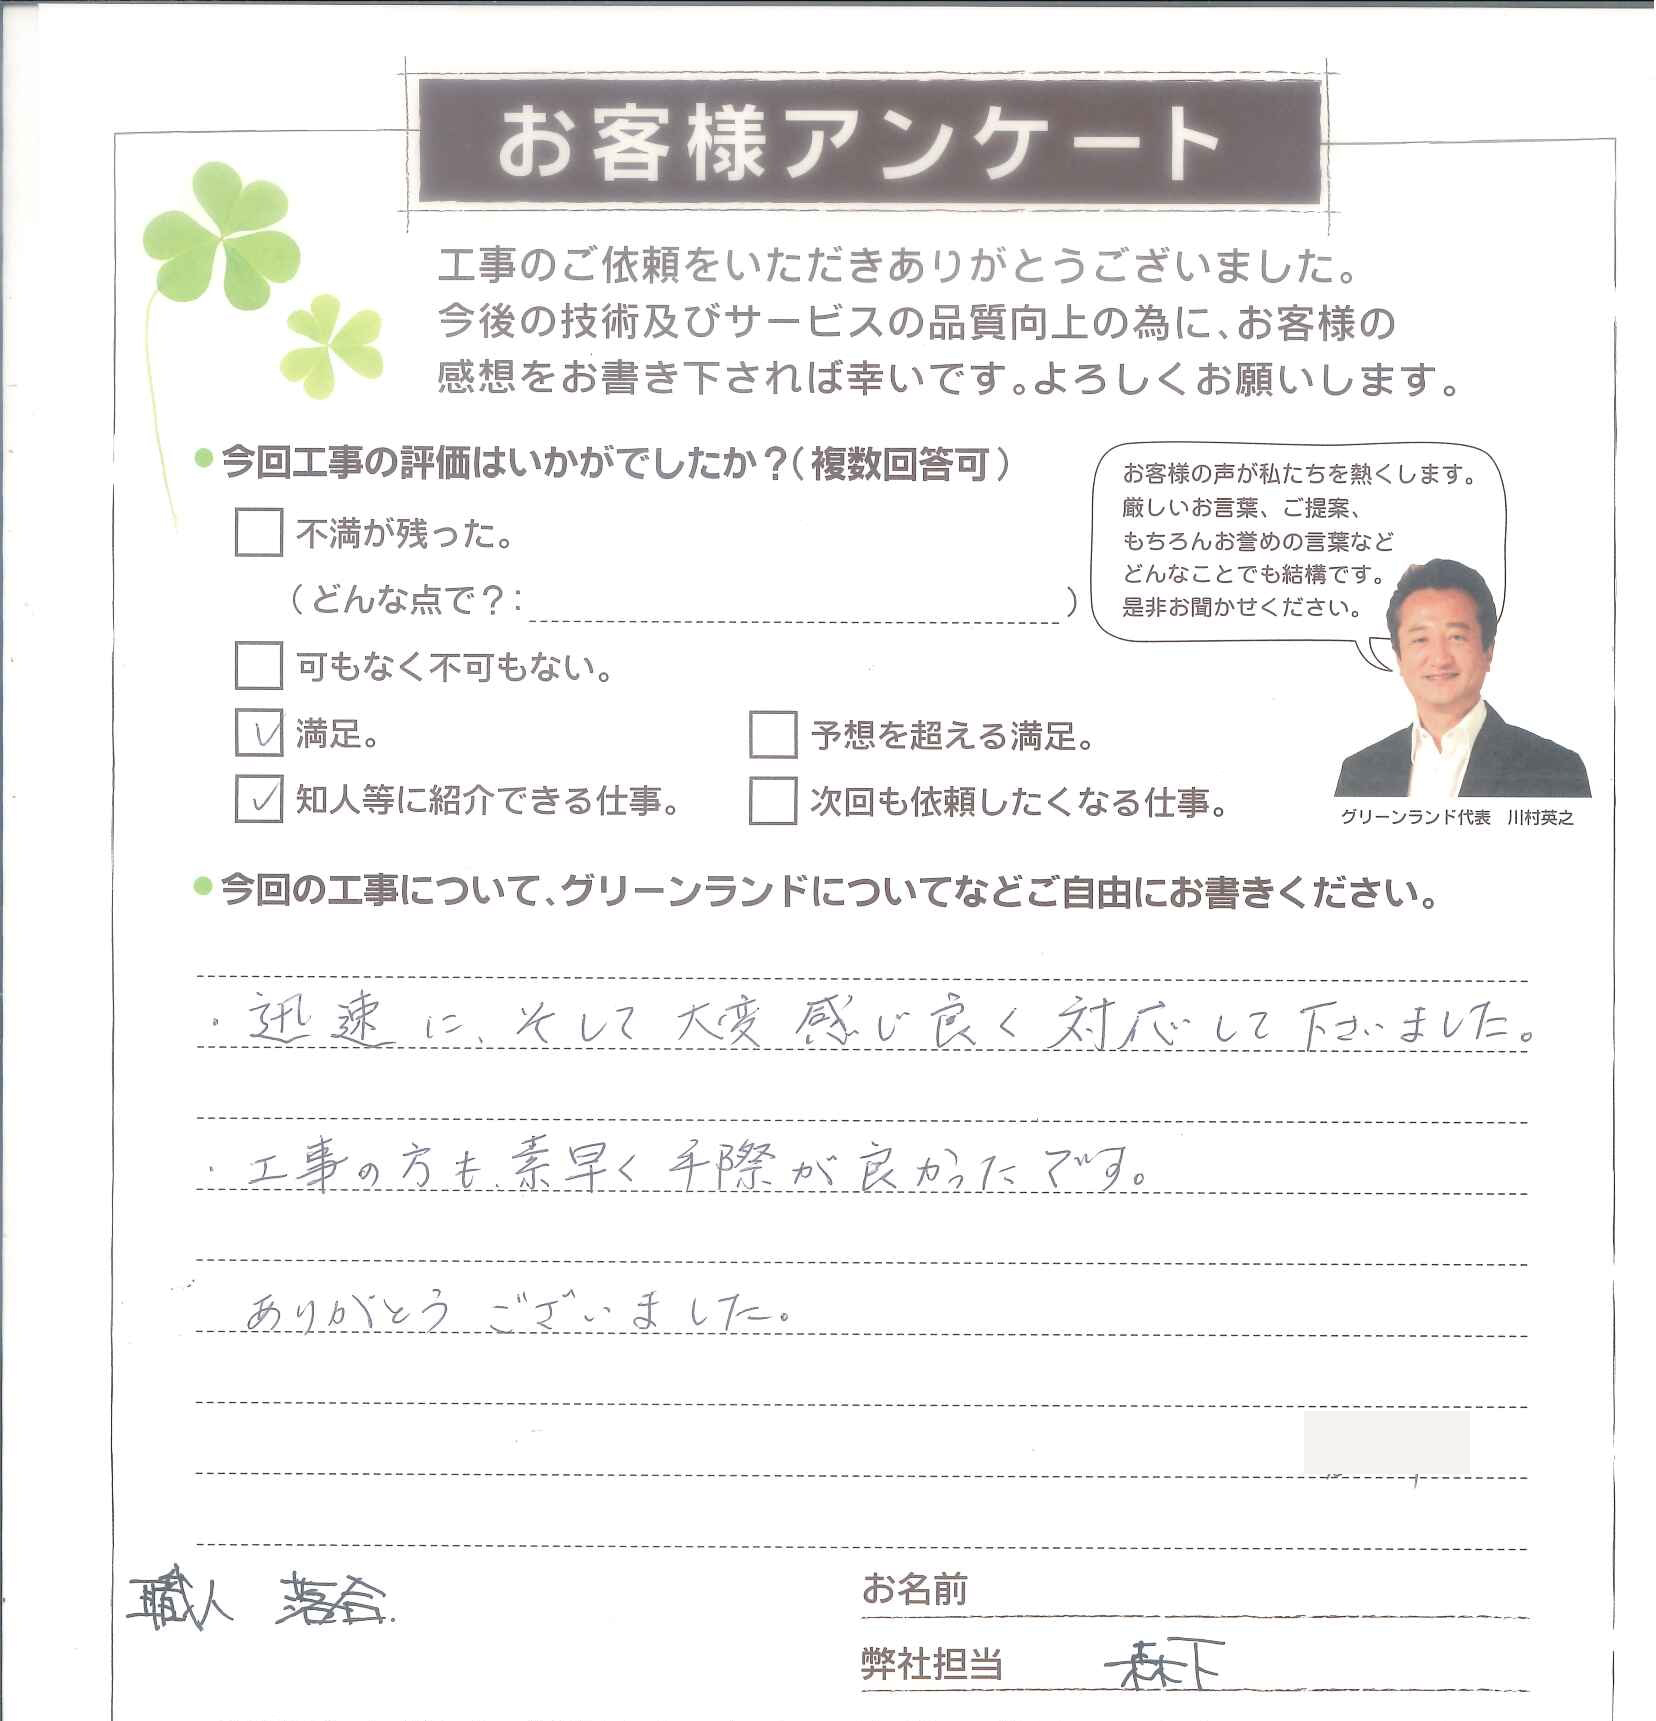 お客様アンケート
工事のご依頼をいただきありがとうございました。
今後の技術及びサービスの品質向上の為に、お客様の
感想をお書き下されば幸いです。よろしくお願いします。
●今回工事の評価はいかがでしたか？（複数回答可）
お客様の声が私たちを熱くします。
厳しいお言葉、ご提案、
もちろんお誉めの言葉など
どんなことでも結構です。
是非お聞かせください。
不満が残った。
（どんな点で？：　）
可もなく不可もない。
満足。
予想を超える満足。
知人等に紹介できる仕事。
次回も依頼したくなる仕事。
グリーンランド代表　川村英之
●今回の工事について、グリーンランドについてなどご自由にお書きください。
・迅速に、そして大変感じ良く対応して下さいました。
・工事の方も、素早く手際が良かったです。
ありがとうございました。
職人　落合.
お名前
弊社担当　森下